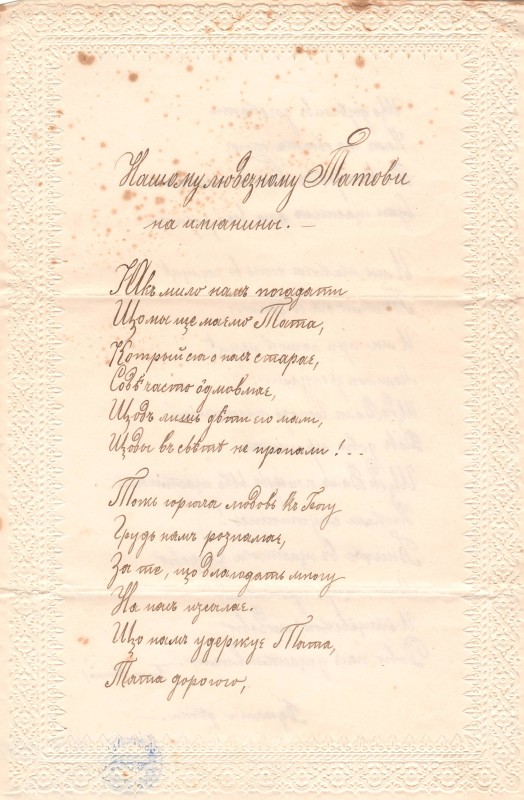 Нашому любезному Татови
на имянины. —
Якъ мило намъ погадати
Що мы ще маемо Тата,
Котрый ся о насъ старае,
Собѣ часто ôдмовляе,
Щобъ лишь дѣти его мали,
Щобы въ свѣтѣ не пропали! . .
Тожь горяча любовь къ Богу
Грудь намъ розпаляе,
За те, що благодать многу
На насъ изсылае.
Що намъ удержуе Тата,
Тата дорогого,